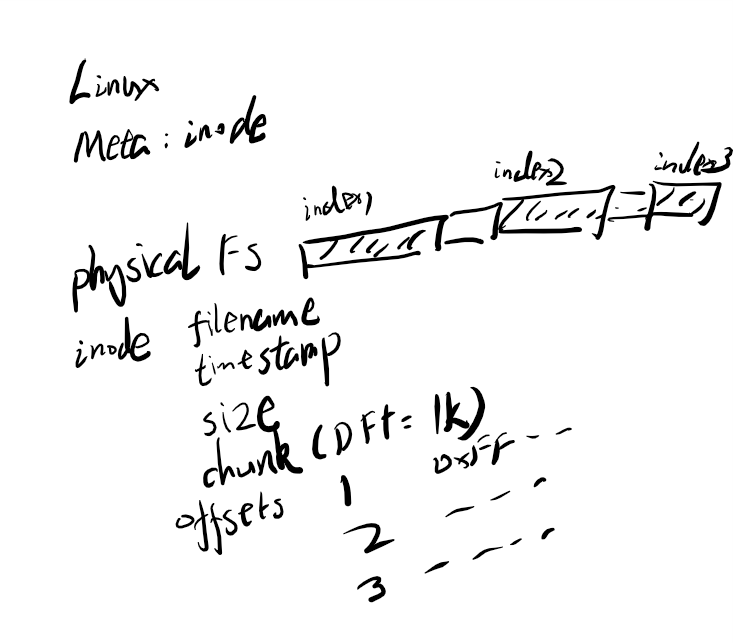 Linux
Meta: inode
index1 index2 index3
physical FS
inode filename
timestamp
size
chunk (DFt = 1k)
offsets 1 0xFF - -
2 - - -
3 - - - -